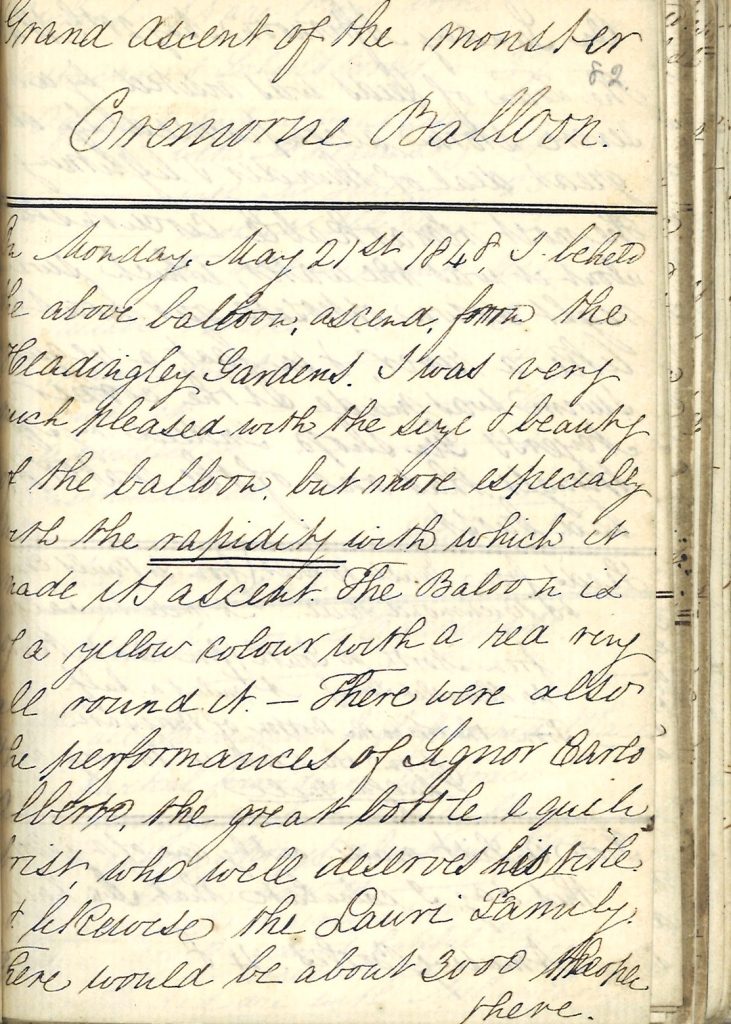 Grand Ascent of the monster
82.
Cremorne Balloon.
n Monday, May 21st 1848, I beheld
he above balloon, ascend, from the
Headingley Gardens. I was very
uch pleased with the size & beauty
f the balloon, but more especially
ith the rapidity with which it
made its ascent. The Baloon is
f a yellow colour with a red ring
ll round it. — There were also
he performances of Signor Carlo
lberto, the great bottle equili
brist, who well deserves his title.
& likewise the Lauri Family.
here would be about 3000 People
there.